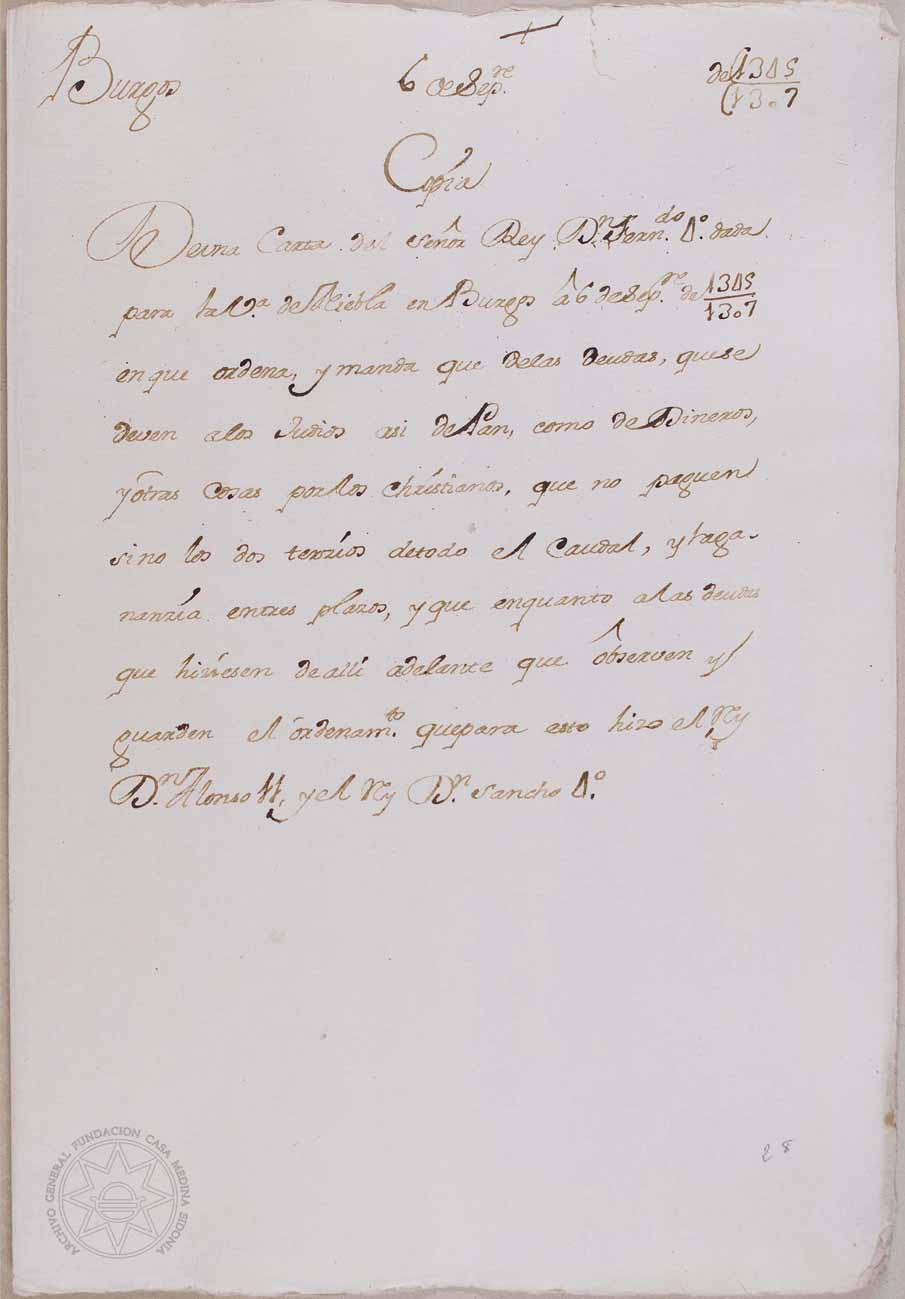 +
Burgos 6 de Sep.re de (1345
(1307
Copia
De una Carta del señor Rey D.n Fern.do 4.o dada
para la V.a de Niebla en Burgos â 6 de Sep.re de 1345
1307
en que ordena, y manda que delas deudas, quese
deven alos Judios asi de Pan, como de Dineros,
y otras cosas porlos christianos, que no paguen
sino los dos terzios detodo el Caudal, y laga-
nanzia entres plazos, y que enquanto alas deudas
que hiziesen de alli adelante que ôbserven y
guarden el ordenam.to quepara esto hizo el Rey
D.n Alonso , y el Rey D.n Sancho 4.o
28
ARCHIVO GENERAL FUNDACION CASA MEDINA SIDONIA